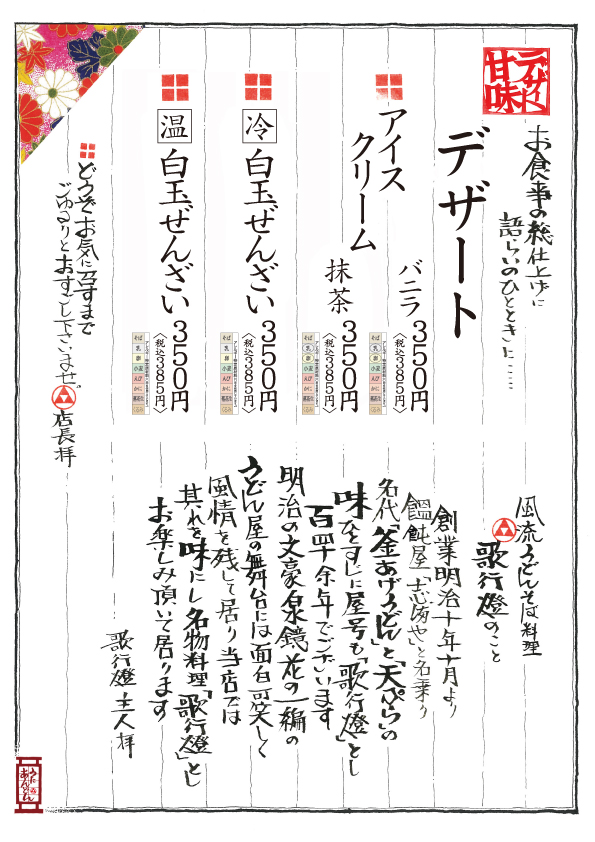 デザート
甘味
お食事の総仕上げに
語らいのひとときに……
デザート
アイス
クリーム
バニラ 350円
〈税込385円〉
抹茶 350円
〈税込385円〉
冷 白玉ぜんざい 350円
〈税込385円〉
温 白玉ぜんざい 350円
〈税込385円〉
そば
乳
卵
小麦
えび
かに
落花生
くるみ
どうぞお気に召すまで
ごゆるりとおすごし下さいませ。
店長拝
風流うどんそば料理
歌行燈のこと
創業明治十年十月より
饂飩屋「志満や」と名乗り
名代「釜あげうどん」と「天ぷら」の
味ひとすじに屋号も「歌行燈」とし
百四十余年でございます
明治の文豪泉鏡花の一編の
うどん屋の舞台には面白可笑しく
風情を残して居り当店では
其れを味にし名物料理「歌行燈」とし
お楽しみ頂いて居ります
歌行燈主人拝